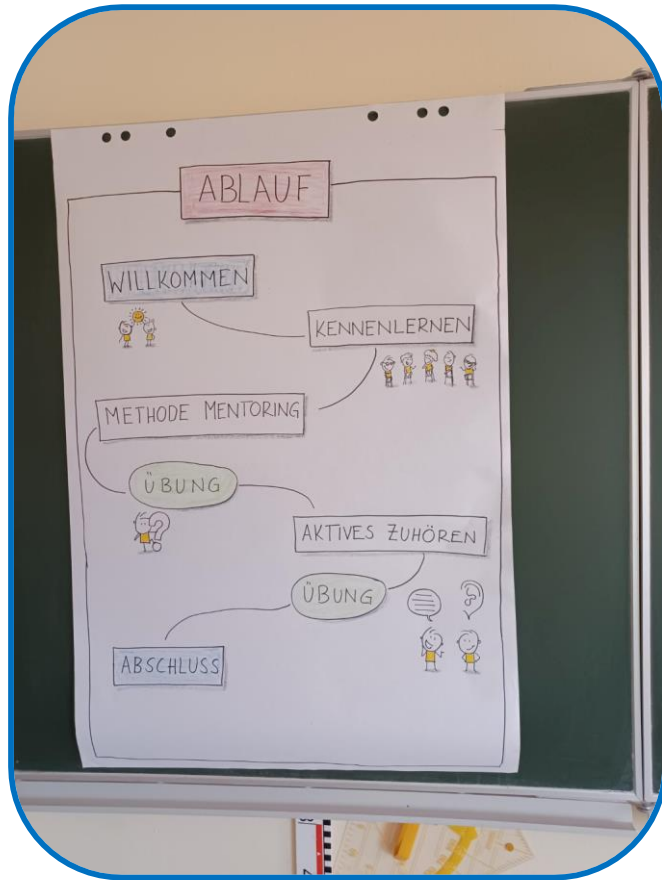 ABLAUF
WILLKOMMEN
KENNENLERNEN
METHODE MENTORING
ÜBUNG
AKTIVES ZUHÖREN
ÜBUNG
ABSCHLUSS